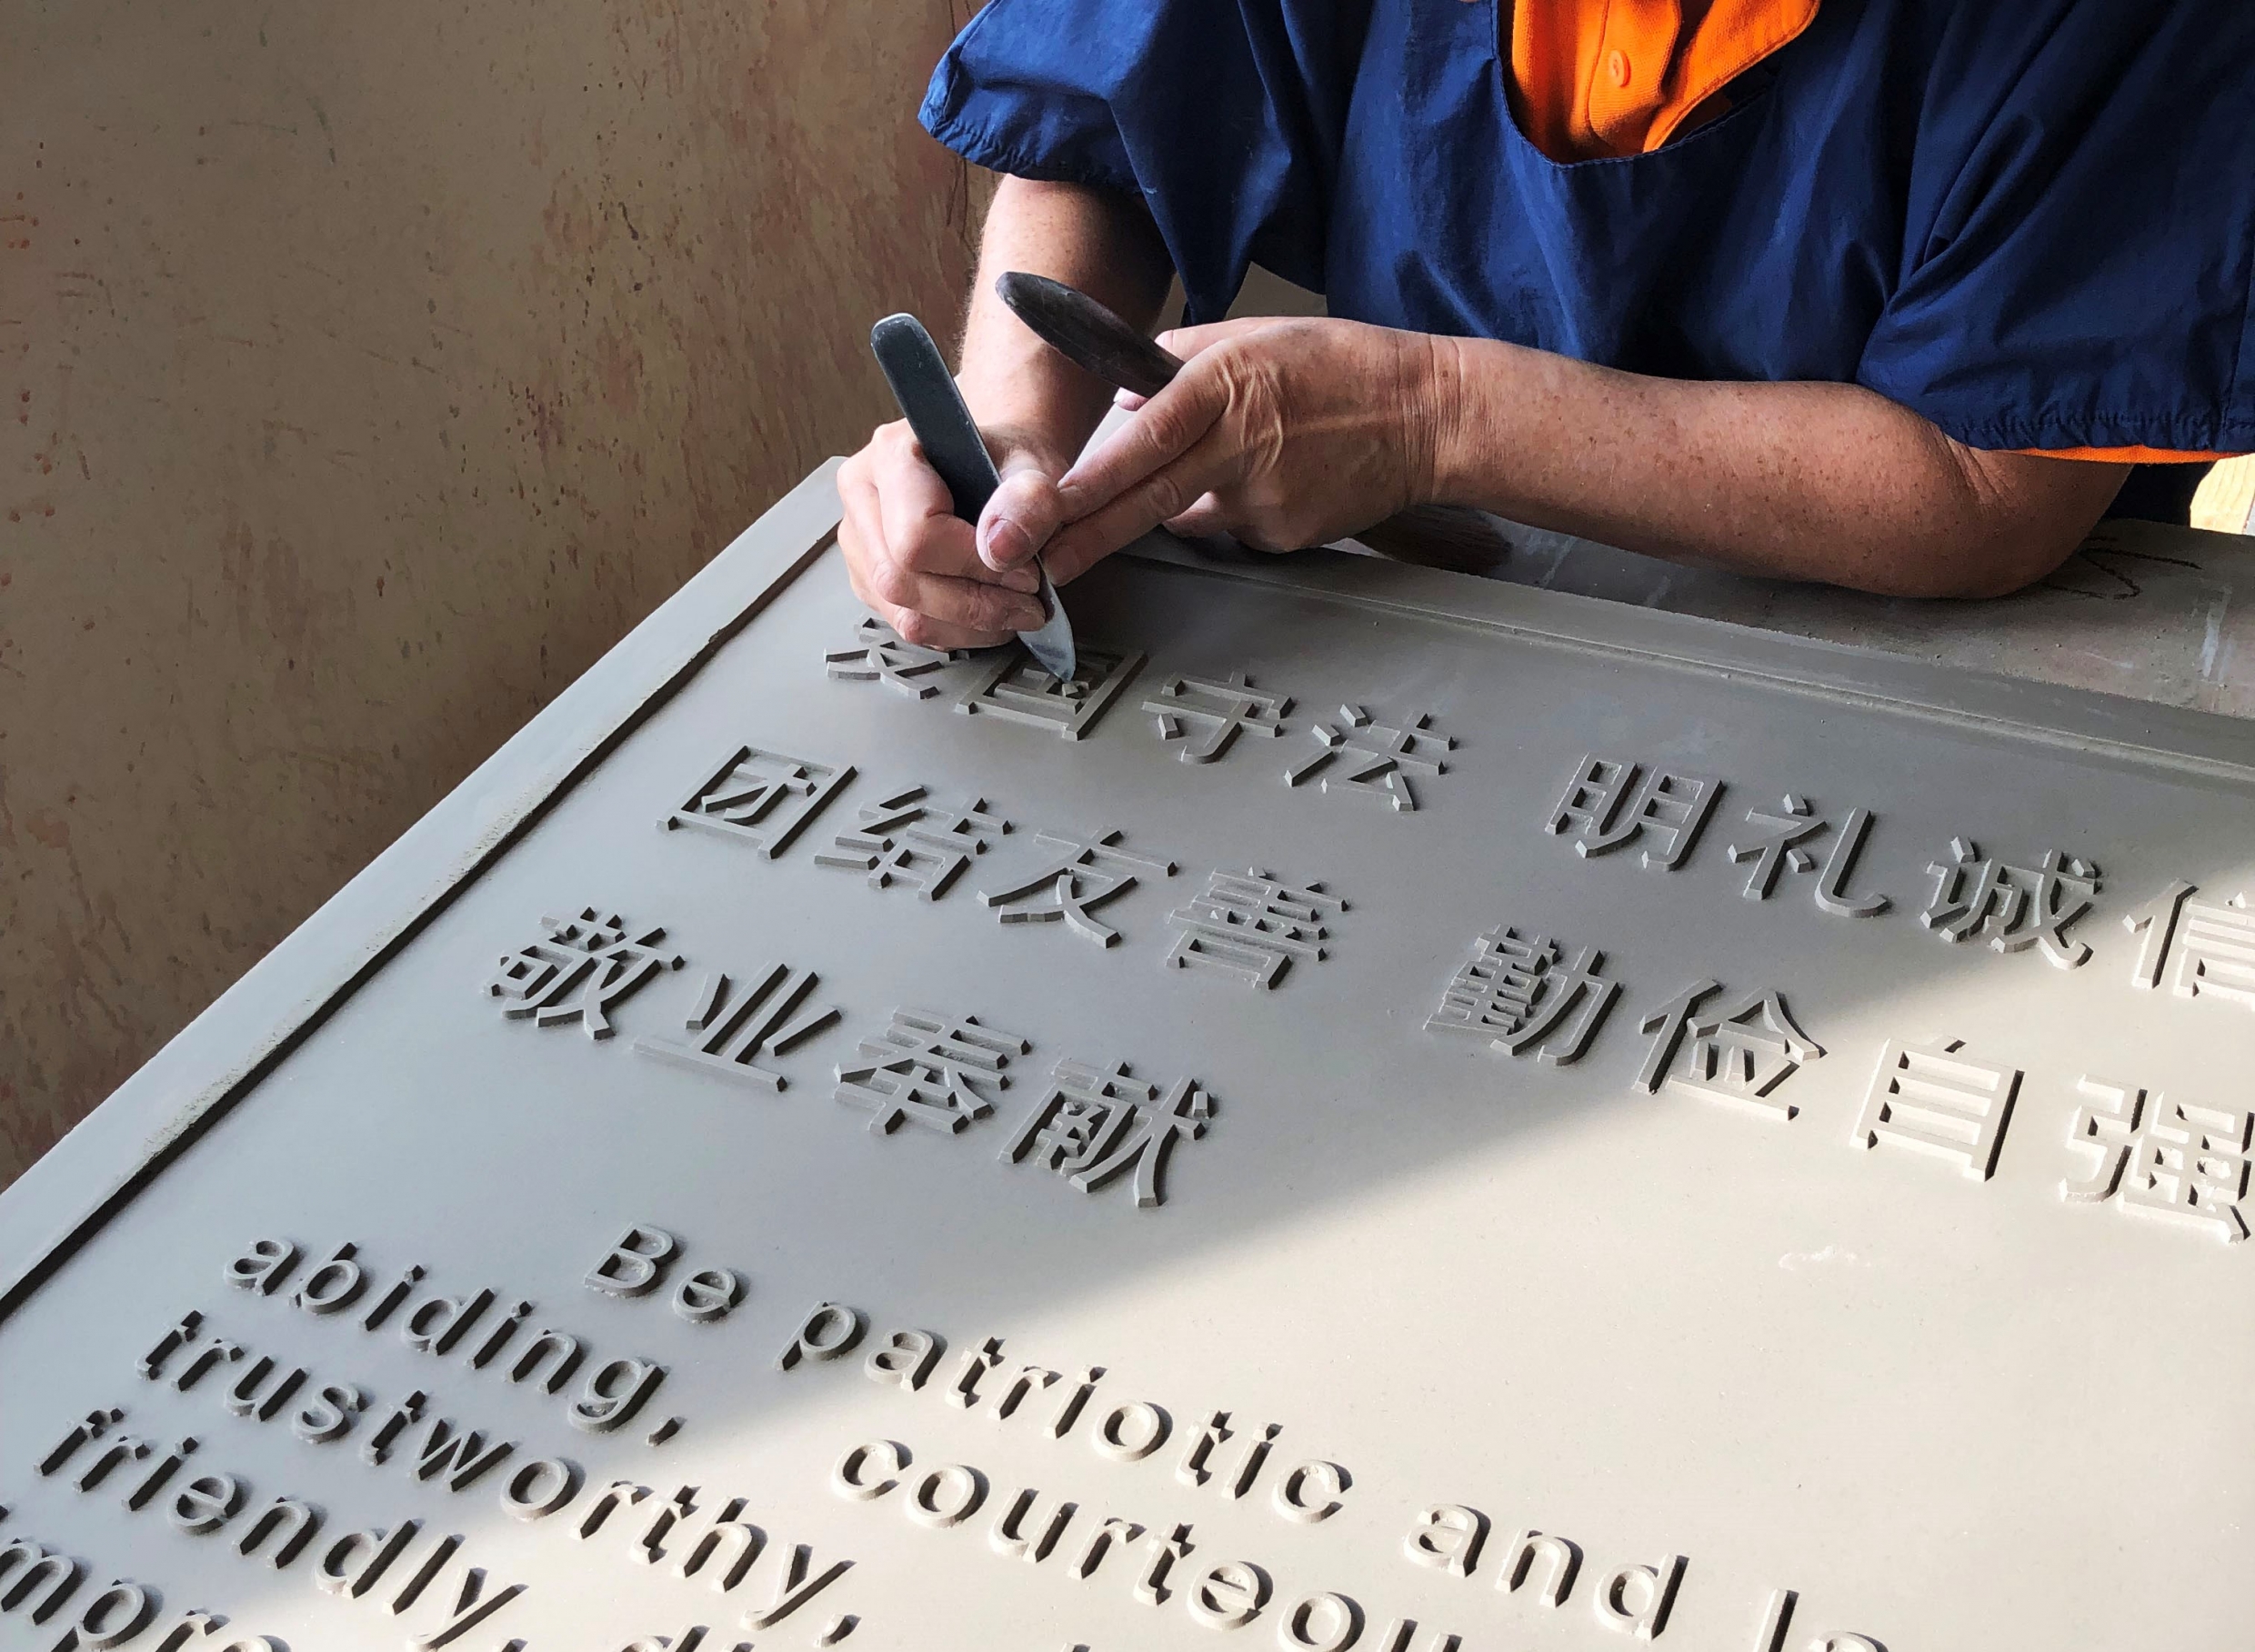 爱国守法 明礼诚信
团结友善 勤俭自强
敬业奉献
Be patriotic and
abiding, courteou
trustworthy,
friendly,